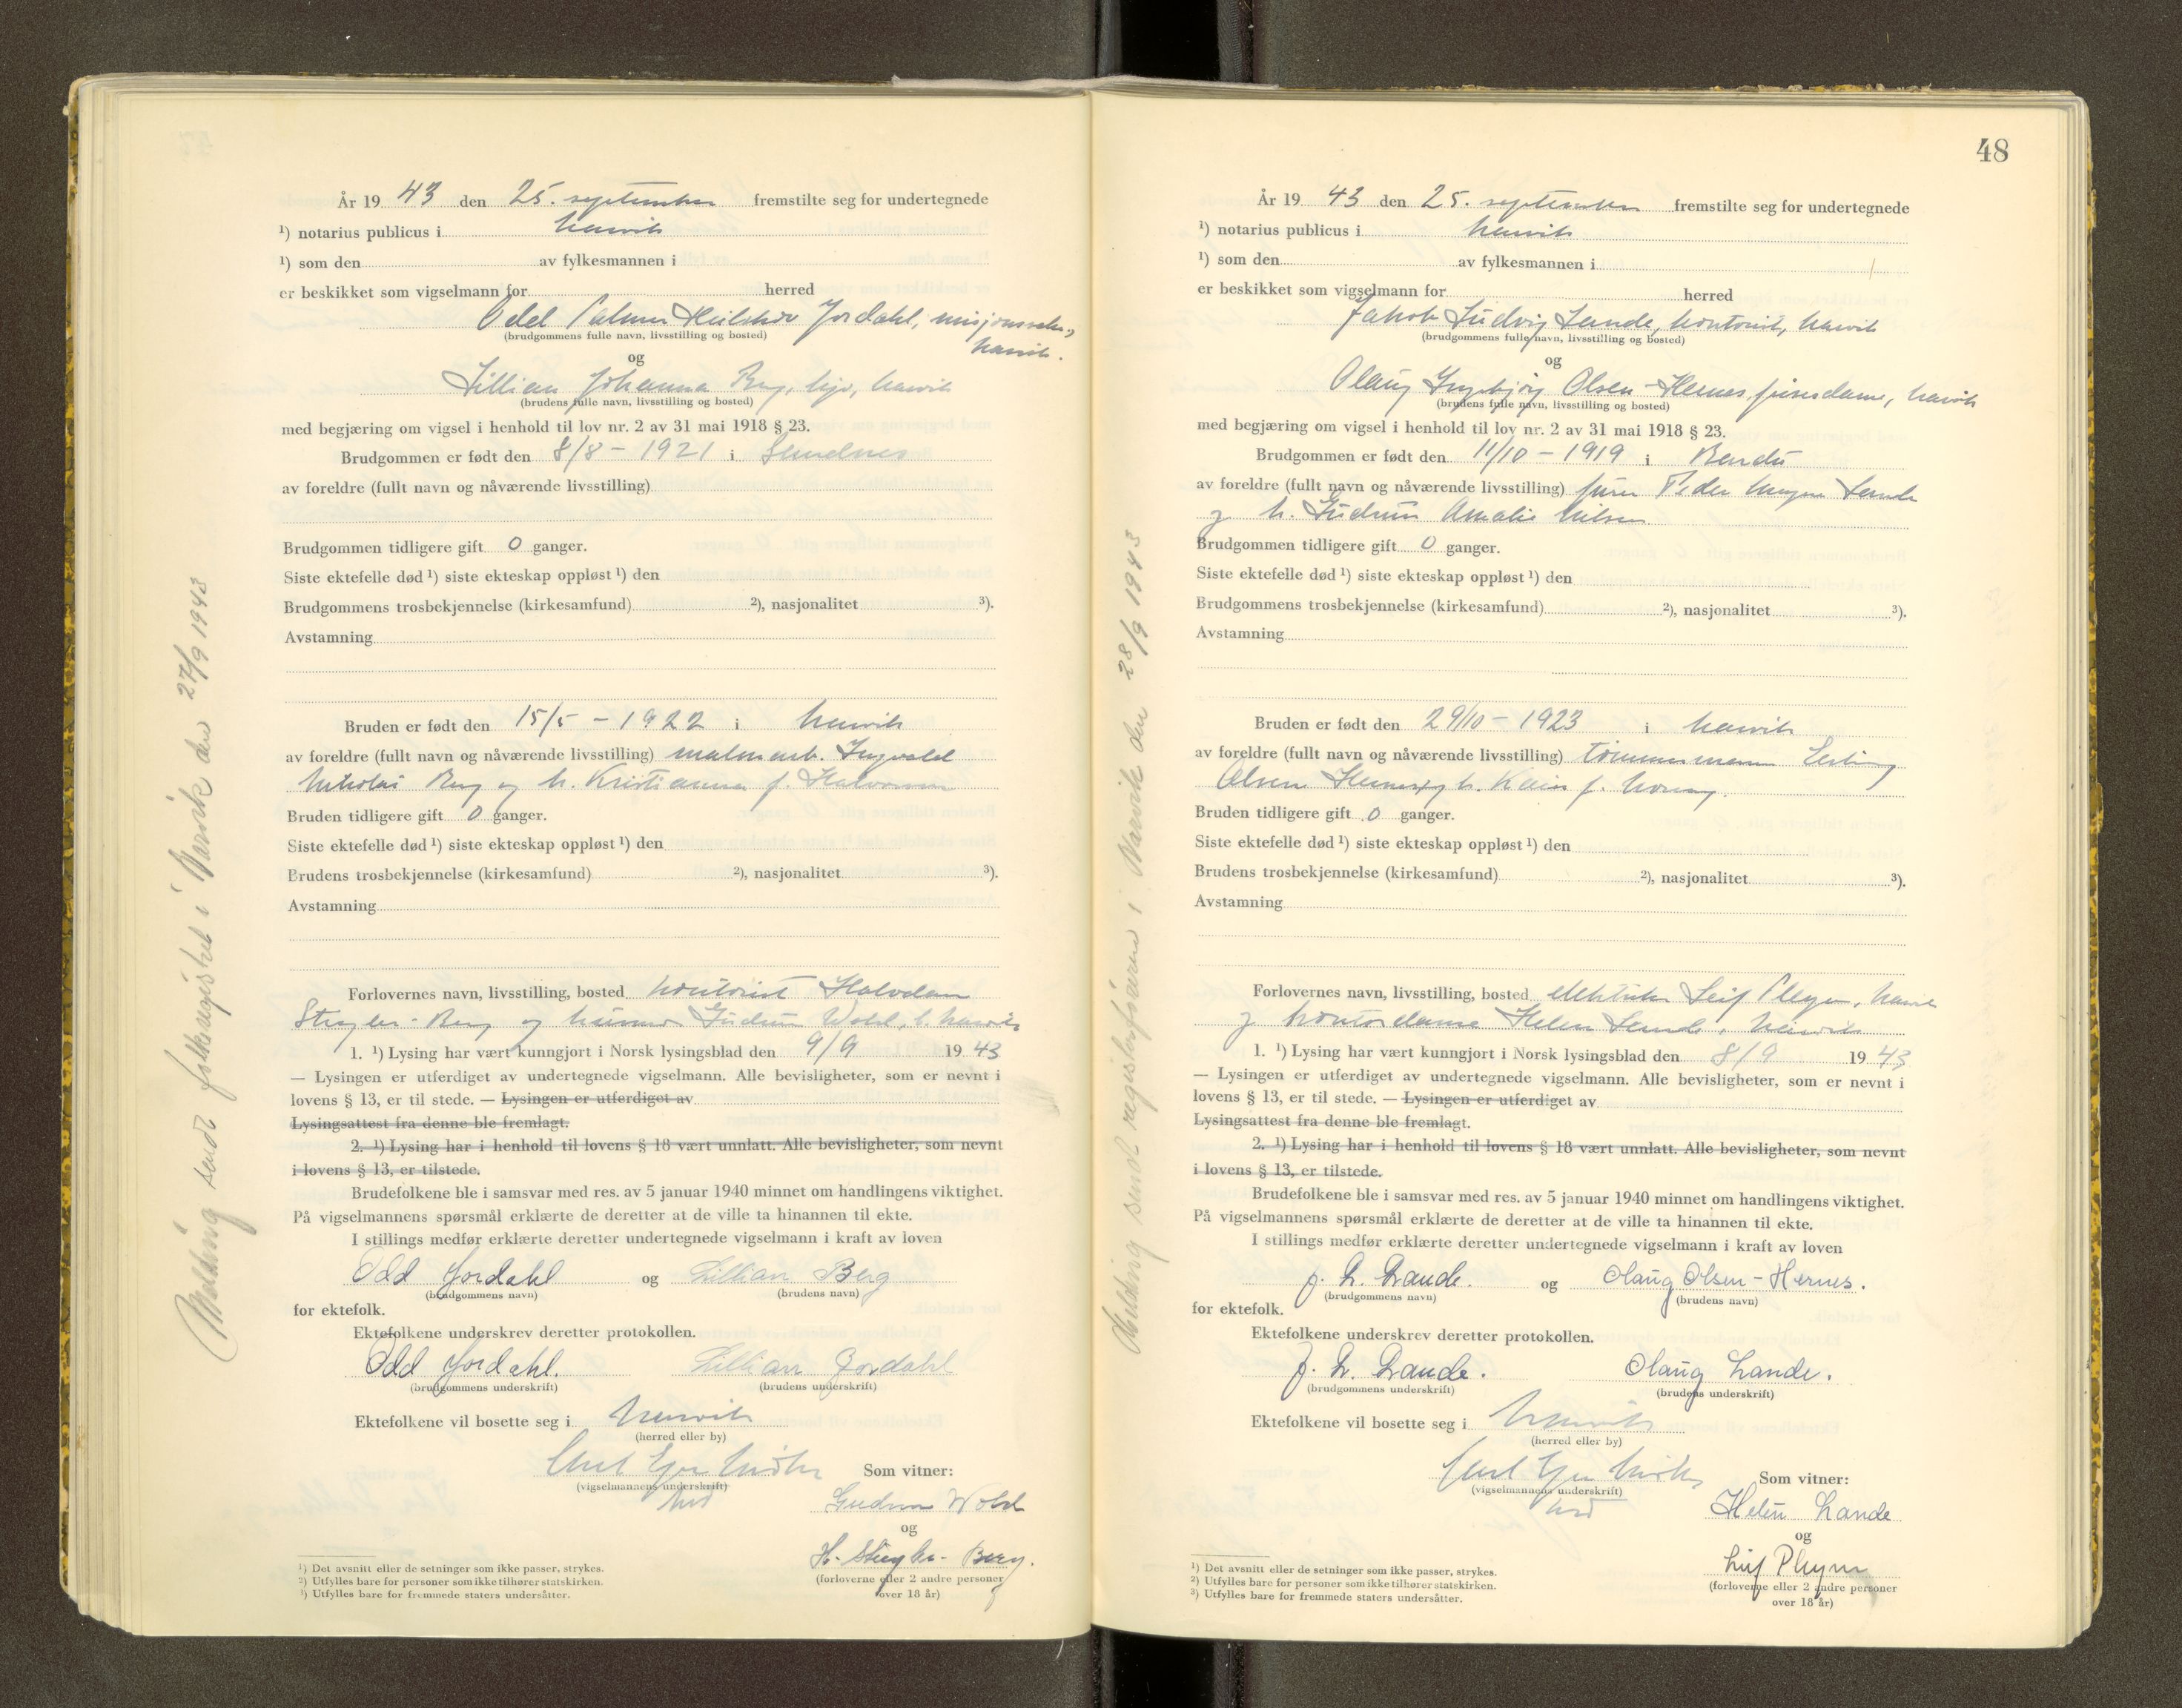 År 19 43 den 25. september fremstilte seg for undertegnede
¹) notarius publicus i Narvik
¹) som den av fylkesmannen i
er beskikket som vigselmann for herred
Odd Jordahl,
Narvik.
(brudgommens fulle navn, livsstilling og bosted)
og
Lillian Johanna Berg, Narvik
(brudens fulle navn, livsstilling og bosted)
med begjæring om vigsel i henhold til lov nr. 2 av 31 mai 1918 § 23.
Brudgommen er født den 8/8 - 1921 i
av foreldre (fullt navn og nåværende livsstilling)
Brudgommen tidligere gift 0 ganger.
Siste ektefelle død ¹) siste ekteskap oppløst ¹) den
Brudgommens trosbekjennelse (kirkesamfund) ²), nasjonalitet ³).
Avstamning
Bruden er født den 15/5 - 1922 i Narvik
av foreldre (fullt navn og nåværende livsstilling) malmarb. Ingvald
Nikolai Berg og h. Kristianna f. Halvorsen
Bruden tidligere gift 0 ganger.
Siste ektefelle død ¹) siste ekteskap oppløst ¹) den
Brudens trosbekjennelse (kirkesamfund) ²), nasjonalitet ³).
Avstamning
Forlovernes navn, livsstilling, bosted kontorist Halvdan
Berg og Gudrun Wold, b. Narvik
1. ¹) Lysing har vært kunngjort i Norsk lysingsblad den 9/9 19 43
— Lysingen er utferdiget av undertegnede vigselmann. Alle bevisligheter, som er nevnt i
lovens § 13, er til stede. — Lysingen er utferdiget av
Lysingsattest fra denne ble fremlagt.
2. ¹) Lysing har i henhold til lovens § 18 vært unnlatt. Alle bevisligheter, som nevnt
i lovens § 13, er tilstede.
Brudefolkene ble i samsvar med res. av 5 januar 1940 minnet om handlingens viktighet.
På vigselmannens spørsmål erklærte de deretter at de ville ta hinannen til ekte.
I stillings medfør erklærte deretter undertegnede vigselmann i kraft av loven
Odd Jordahl og Lillian Berg
(brudgommens navn) (brudens navn)
for ektefolk.
Ektefolkene underskrev deretter protokollen.
Odd Jordahl. Lillian Jordahl
(brudgommens underskrift) (brudens underskrift)
Ektefolkene vil bosette seg i Narvik
(herred eller by)
(vigselmannens underskrift)
Som vitner:
Gudrun Wold
og
H. Berg.
(forloverne eller 2 andre personer
over 18 år)
¹) Det avsnitt eller de setninger som ikke passer, strykes.
²) Utfylles bare for personer som ikke tilhører statskirken.
¹) Utfylles bare for fremmede staters undersåtter.
Melding sendt folkeregistret i Narvik den 27/9 1943
48
År 19 43 den 25. september fremstilte seg for undertegnede
¹) notarius publicus i Narvik
¹) som den av fylkesmannen i
er beskikket som vigselmann for herred
Jakob Ludvig Lande, kontorist, Narvik
(brudgommens fulle navn, livsstilling og bosted)
og
Olaug Ingebjørg Olsen-Hernes, Narvik
(brudens fulle navn, livsstilling og bosted)
med begjæring om vigsel i henhold til lov nr. 2 av 31 mai 1918 § 23.
Brudgommen er født den 11/10 - 1919 i
av foreldre (fullt navn og nåværende livsstilling) Peder Lande
og h. Gudrun Amalie Nilsen
Brudgommen tidligere gift 0 ganger.
Siste ektefelle død ¹) siste ekteskap oppløst ¹) den
Brudgommens trosbekjennelse (kirkesamfund) ²), nasjonalitet ³).
Avstamning
Bruden er født den 29/10 - 1923 i Narvik
av foreldre (fullt navn og nåværende livsstilling) tømmermann
Olsen Hernes og h. f.
Bruden tidligere gift 0 ganger.
Siste ektefelle død ¹) siste ekteskap oppløst ¹) den
Brudens trosbekjennelse (kirkesamfund) ²), nasjonalitet ³).
Avstamning
Forlovernes navn, livsstilling, bosted elektriker Leif Pleym, Narvik
og kontordame Helen Lande, Narvik
1. ¹) Lysing har vært kunngjort i Norsk lysingsblad den 8/9 19 43
— Lysingen er utferdiget av undertegnede vigselmann. Alle bevisligheter, som er nevnt i
lovens § 13, er til stede. — Lysingen er utferdiget av
Lysingsattest fra denne ble fremlagt.
2. ¹) Lysing har i henhold til lovens § 18 vært unnlatt. Alle bevisligheter, som nevnt
i lovens § 13, er tilstede.
Brudefolkene ble i samsvar med res. av 5 januar 1940 minnet om handlingens viktighet.
På vigselmannens spørsmål erklærte de deretter at de ville ta hinannen til ekte.
I stillings medfør erklærte deretter undertegnede vigselmann i kraft av loven
J. L. Lande. og Olaug Olsen-Hernes.
(brudgommens navn) (brudens navn)
for ektefolk.
Ektefolkene underskrev deretter protokollen.
J. L. Lande. Olaug Lande.
(brudgommens underskrift) (brudens underskrift)
Ektefolkene vil bosette seg i Narvik
(herred eller by)
(vigselmannens underskrift)
Som vitner:
Helen Lande
og
Leif Pleym
(forloverne eller 2 andre personer
over 18 år)
¹) Det avsnitt eller de setninger som ikke passer, strykes.
²) Utfylles bare for personer som ikke tilhører statskirken.
³) Utfylles bare for fremmede staters undersåtter.
Melding sendt registerføreren i Narvik den 28/9 1943